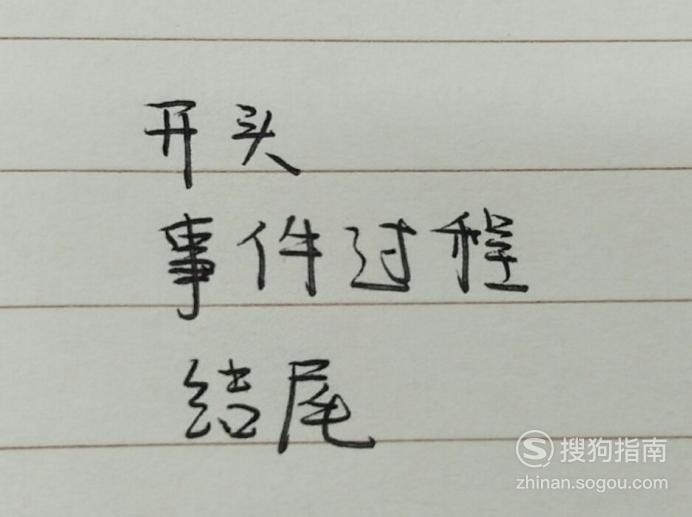 开头
事件过程
结尾
搜狗指南
zhinan.sogou.com